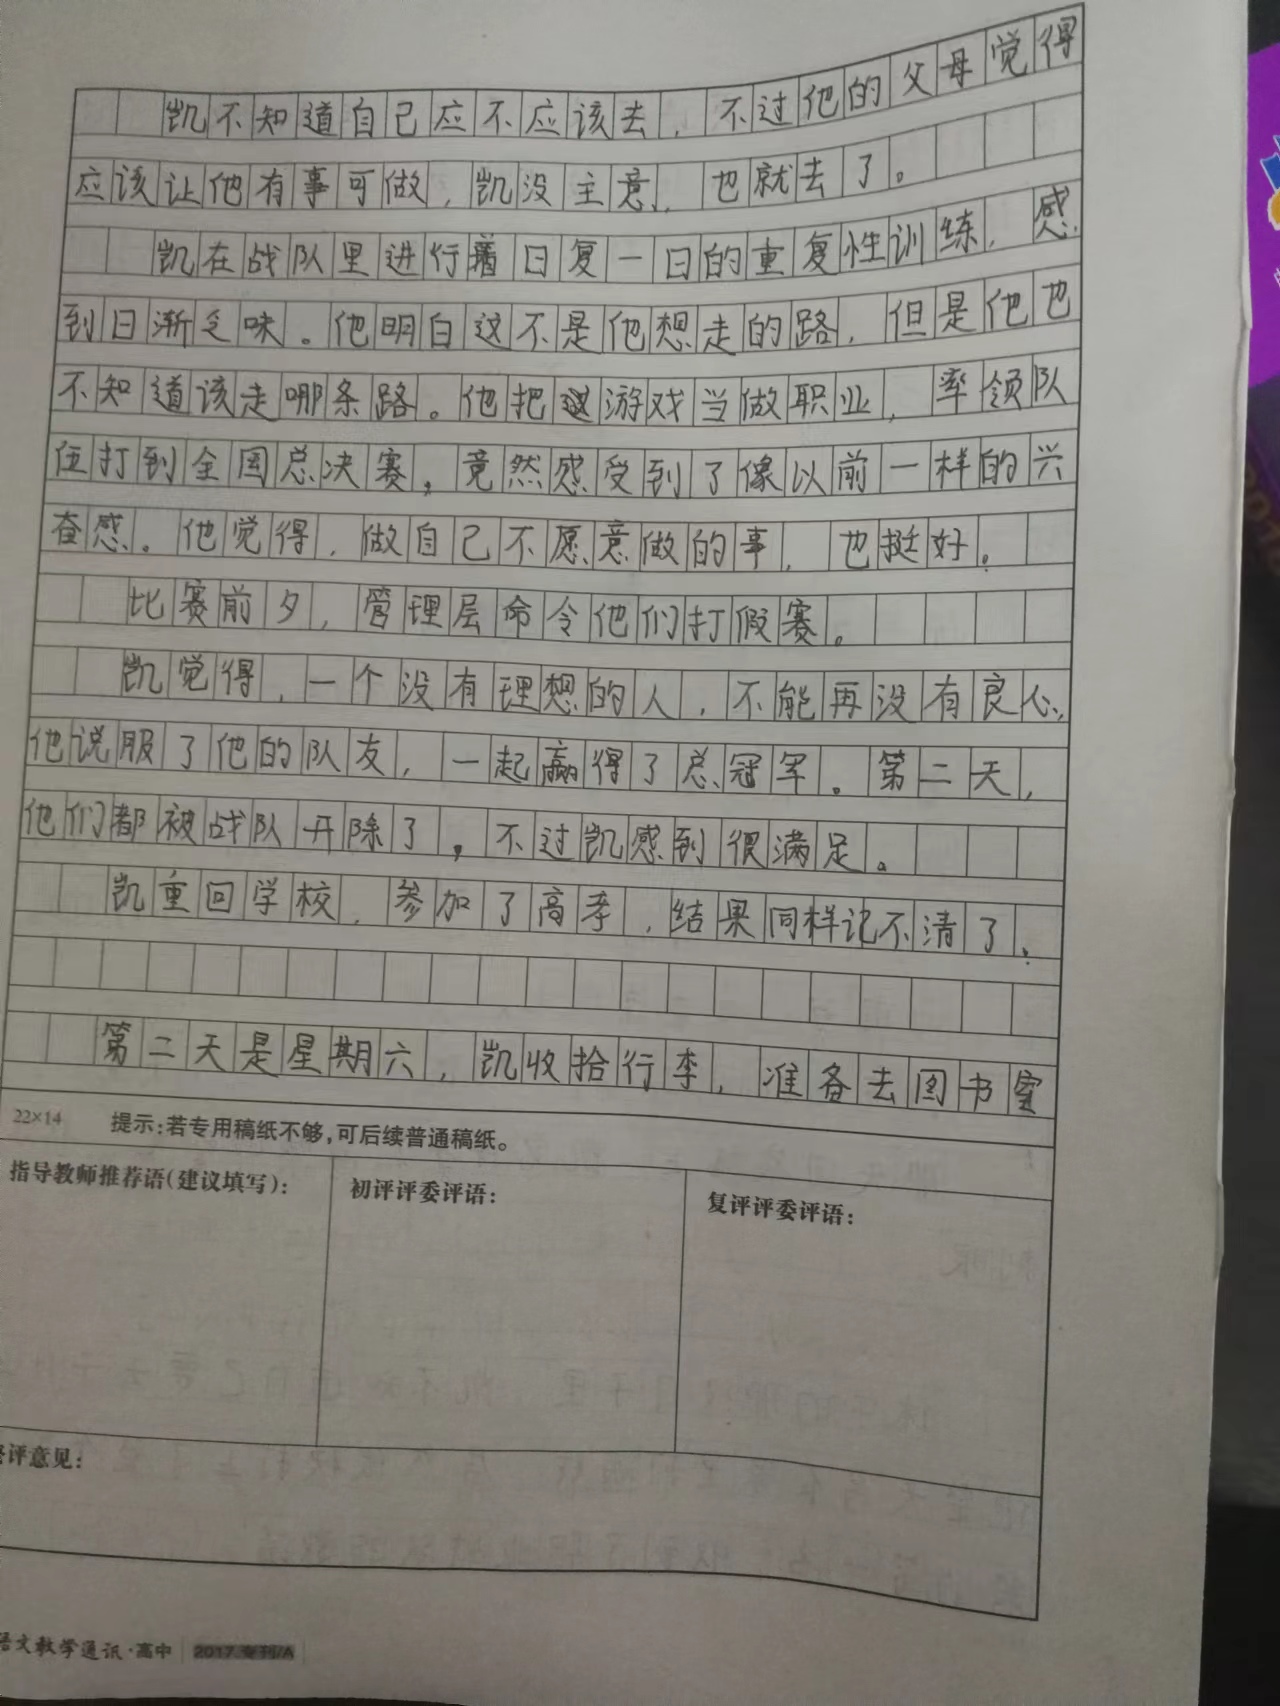 凯不知道自己应不应该去，不过他的父母觉得
应该让他有事可做，凯没主意，也就去了。
凯在战队里进行着日复一日的重复性训练，感
到日渐乏味。他明白这不是他想走的路，但是他也
不知道该走哪条路。他把这游戏当做职业，率领队
伍打到全国总决赛，竟然感受到了像以前一样的兴
奋感。他觉得，做自己不愿意做的事，也挺好。
比赛前夕，管理层命令他们打假赛。
凯觉得，一个没有理想的人，不能再没有良心，
他说服了他的队友，一起赢得了总冠军。第二天，
他们都被战队开除了，不过凯感到很满足。
凯重回学校，参加了高考，结果同样记不清了。
第二天是星期六，凯收拾行李，准备去图书室
22×14 提示：若专用稿纸不够，可后续普通稿纸。
指导教师推荐语(建议填写)： 初评评委评语： 复评评委评语：
终评意见：
语文教学通讯·高中 2017.专刊/A